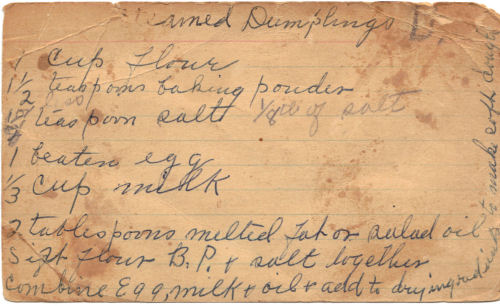 Steamed Dumplings
1 Cup Flour
1 1/2 teaspoons baking powder
teaspoon salt 1/8 of salt
1 beaten egg
1/3 Cup milk
2 tablespoons melted fat or salad oil
Sift flour B.P. + salt together
Combine Egg, milk + oil + add to dry ingredients
to make soft dough